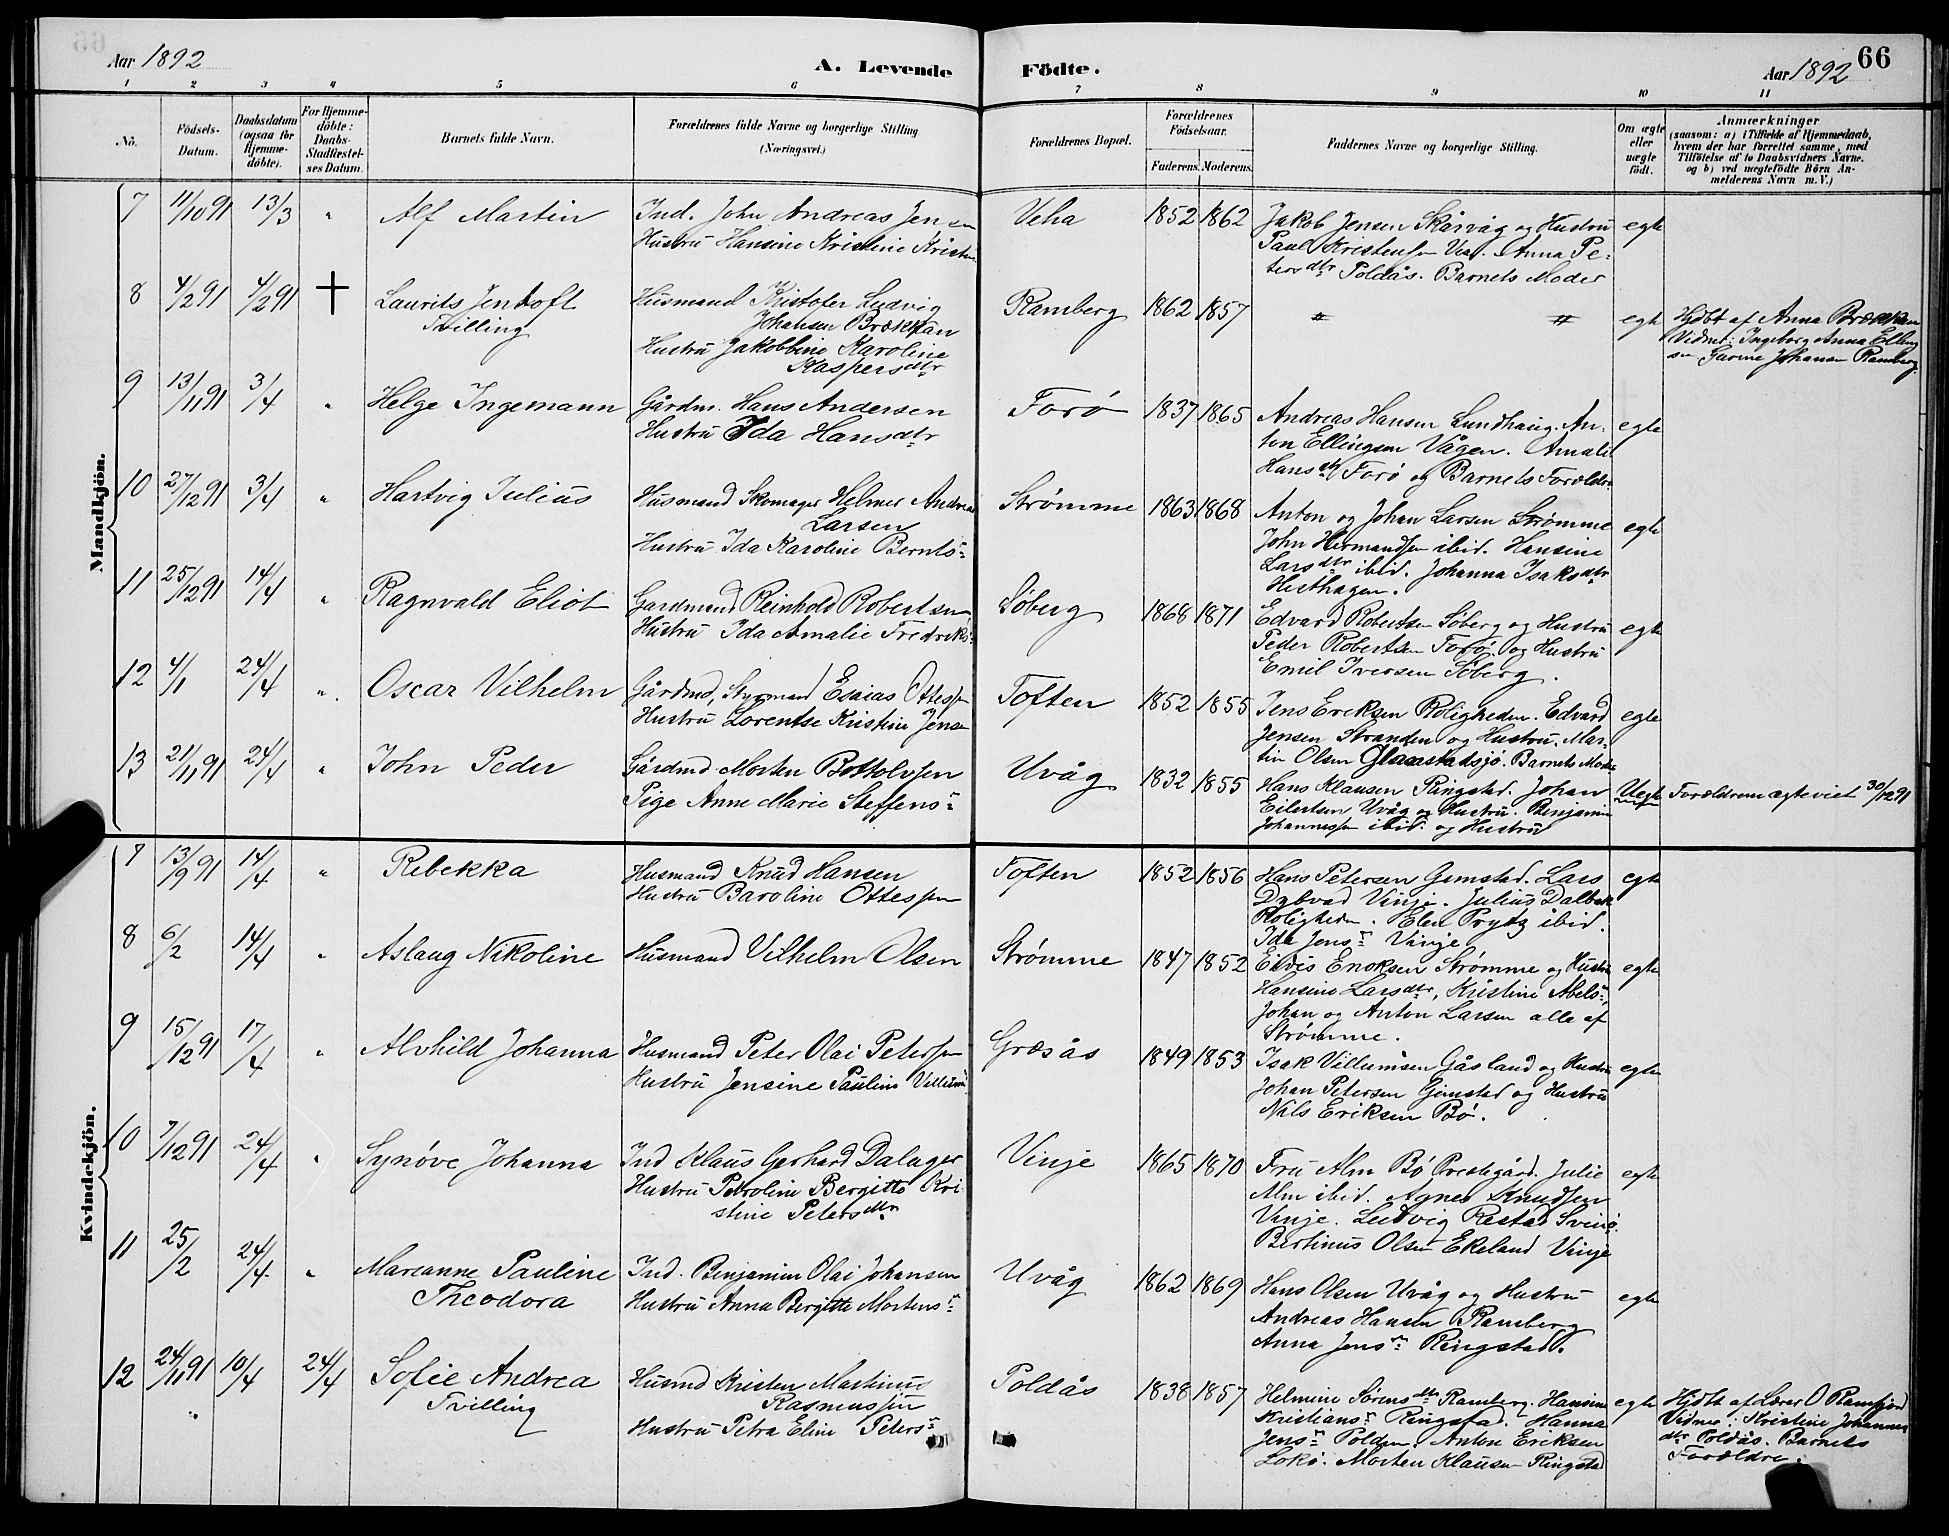 Aar 1892
A. Levende Födte.
Aar 1892
66
1 2 3 4 5 6 7 8 9 10 11
No.
Födsels-Datum.
Daabsdatum (ogsaa for Hjemme-döbte).
For Hjemme-döbte: Daabs-Stadfæstel-ses Datum.
Barnets fulde Navn.
Forældrenes fulde Navne og borgerlige Stilling (Næringsvei.)
Forældrenes Bopæl.
Forældrenes Födselsaar.
Faderens. Moderens.
Faddernes Navne og borgerlige Stilling.
Om ægte eller uægte födt.
Anmærkninger
(saasom: a) i Tilfælde af Hjemmedaab,
hvem der har forrettet samme, med
Tilföielse af to Daabsvidners Navne.
og b) ved uægtefödte Börn An-
melderens Navn m. V.)
Mandkjön.
7 11/10 91 13/3 " Alf Martin Ind. John Andreas Jensen Veha 1852 1862 Jakob Jensen Skårvåg og Hustru egte
Hustru Hansine Kristine Kristen
Paul Kristensen Vea. Anna Pe-
ters dtr Poldås. Barnets Moder
8 4/2 91 4/2 91 † Laurits Jentoft Husmand Kristofer Ludvig Ramberg 1862 1857 " " egte Hjdbt af Anna Brækkan
Tvilling Johansen Brækkan
Vidner: Ingeborg Anna Elling
Hustru Jakobbine Karoline
Kaspersdtr
sen Gurine Johansen Ramberg
9 13/11 91 3/4 " Helge Ingemann Gårdm. Hans Andersen Forö 1837 1865 Andreas Hansen Lundhaug. An- egte
Hustru Ida Hansdtr
ton Ellingsen Vågen. Amali
Hansdtr Forö og Barnets Forældre
10 27/12 91 3/4 " Hartvig Julius Husmand Skomager Helmer Andreas Strömme 1863 1868 Anton og Johan Larsen Strömme egte
Larsen
Hustru Ida Karoline Bernts
John Hermandsen ibid. Hansine
Larsdtr ibid. Johanna Isaksdtr
Hesthagen.
11 25/12 91 14/4 " Ragnvald Eliot Gardmand Reinhold Robertsen Söberg 1868 1871 Edvard Robertsen Söberg og Hustru egte
Hustru Ida Amalie Fredriks
Peder Robertsen Forö. og Hustru
Emil Iversen Söberg.
12 4/1 24/4 " Oscar Vilhelm Gårdmd, Styrmand Esaias Ottessen Toften 1852 1855 Jens Eriksen Roligheden. Edvard egte
Hustru Lorentse Kristine Jensen
Jensen Stranden og Hustru. Mar-
tin Olsen Glamstadsjö. Barnets Mode
13 21/11 91 24/4 " John Peder Gårdmd Morten Bottolvsen Uvåg 1832 1855 Hans Klausen Ringstad. Johan Uegte Forældrene ægteviet 30/12 91
Pige Anne Marie Steffens
Eilertsen Uvåg og Hustru. Benjamin
Johannessen ibid. og Hustru
Kvindekjön.
7 13/9 91 14/4 " Rebekka Husmand Knud Hansen Toften 1852 1856 Hans Petersen Gimstad. Lars egte
Hustru Baroline Ottessen
Dybvad Vinje. Julius Dalbak
Roligheden. Elen Prytz ibid.
Ida Jens Vinje
8 6/2 14/4 " Aslaug Nikoline Husmand Vilhelm Olsen Strömme 1847 1852 Elvis Enoksen Strömme og Hustru egte
Hansine Larsdtr, Kristine Abels
Johan og Anton Larsen alle af
Strömme.
9 15/12 91 17/4 " Alvhild Johanna Husmand Peter Olai Petersen Græsås 1849 1853 Isak Villumsen Gåsland og Hustru egte
Hustru Jensine Pauline Villums
Johan Petersen Gimstad og Hustru
Nils Eriksen Bö.
10 7/12 91 24/4 " Synöve Johanna Ind Klaus Gerhard Dalager Vinje 1865 1870 Fru Alm Bö Prestegård. Julie egte
Hustru Petroline Bergitte Kri-
stine Petersdtr
Alm ibid. Agnes Knudsen
Vinje. Ludvig Restad Svinö.
Bertinus Olsen Ekeland Vinje
11 25/2 24/4 " Mareanne Pauline Ind. Benjamin Olai Johansen Uvåg 1862 1869 Hans Olsen Uvåg og Hustru egte
Theodora Hustru Anna Bergitte Mortens
Andreas Hansen Ramberg
Anna Jens Ringstad.
12 24/11 91 10/4 24/4 Sofie Andrea Husmd Kristen Martinus Poldås 1838 1857 Helmine Sörensdtr Ramberg. Hansine egte Hjdbt af Lærer O Ramfjord
Tvilling Rasmussen
Hustru Petra Eline Peters
Kristians Ringstad. Hanna
Vidner: Kristine Johannes
Jens Polden. Anton Eriksen
dtr Poldås. Barnets
Lokö. Morten Klausen Ringstad
Forældre.